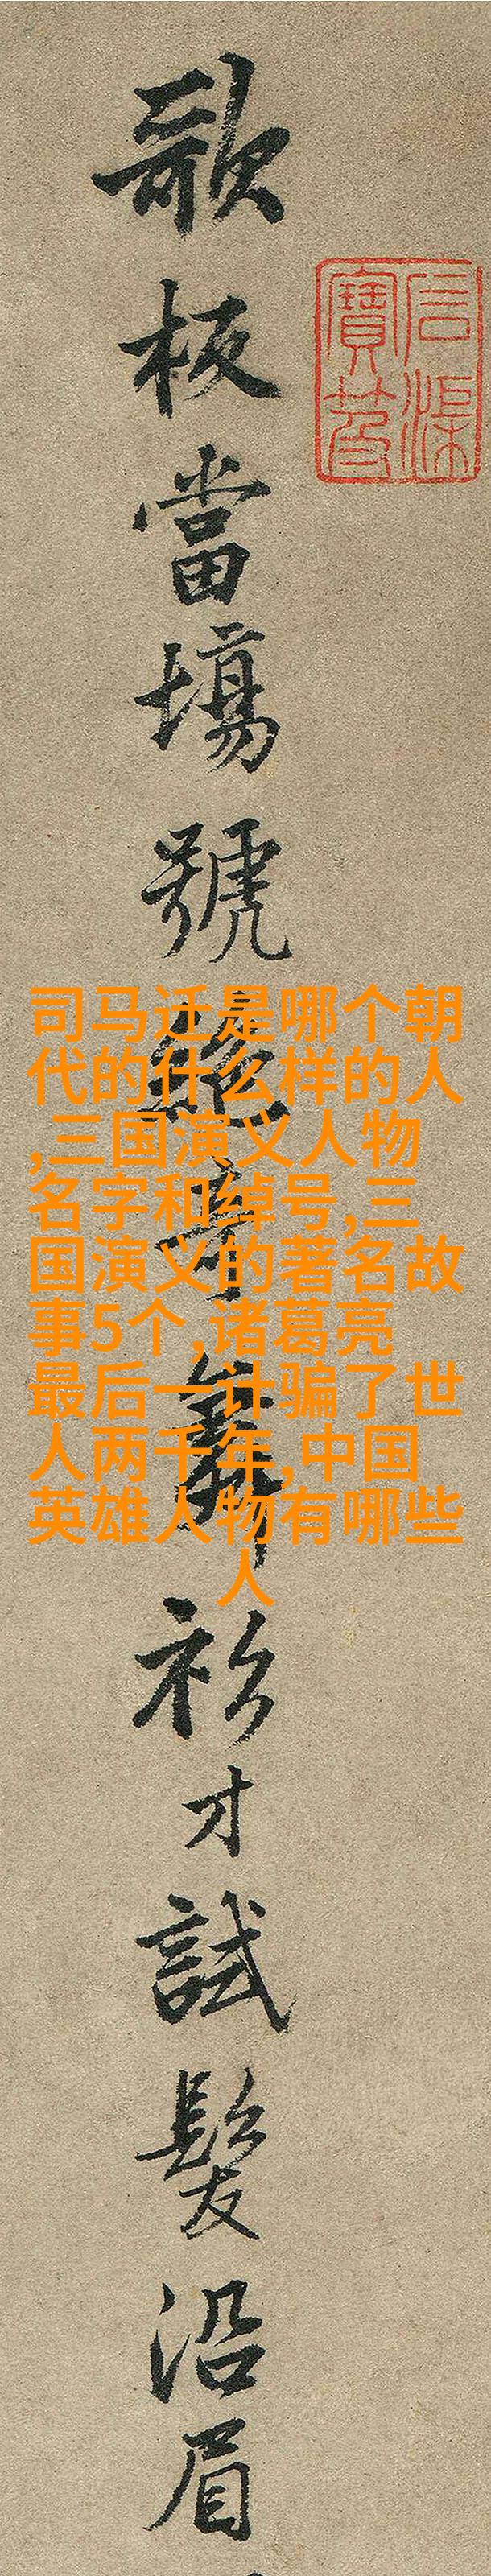 歌板當場號絕奇舞衫才試髮沿眉
司马迁是哪个朝
代的什么样的人
,三国演义人物
名字和绰号,三
国演义的著名故
事5个,诸葛亮
最后一计骗了世
人两千年,中国
英雄人物有哪些
人